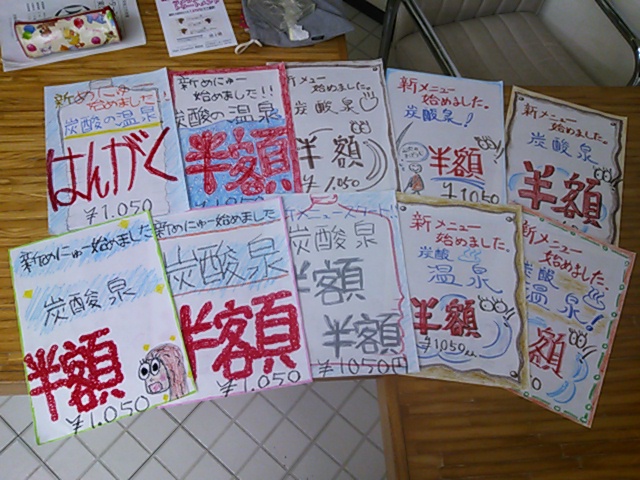 新めにゅー
始めました!!
炭酸の温泉
はんがく
¥1,050
新めにゅー
始めました!!
炭酸の温泉
半額
¥1,050
新メニュー
始めました。
炭酸泉
半額
¥1,050
新メニュー
始めました。
炭酸泉!
半額
¥1050
新メニュー
始めました。
炭酸泉
半額
新めにゅー始めました
炭酸泉
半額
¥1,050
新めにゅー始めました
炭酸泉
半額
¥1,050
新メニュースタート!
炭酸泉
半額
半額
¥1050円
新メニュー
始めました。
炭酸
温泉
半額
¥1050
新メニュー
始めました。
炭酸
温泉!
半額